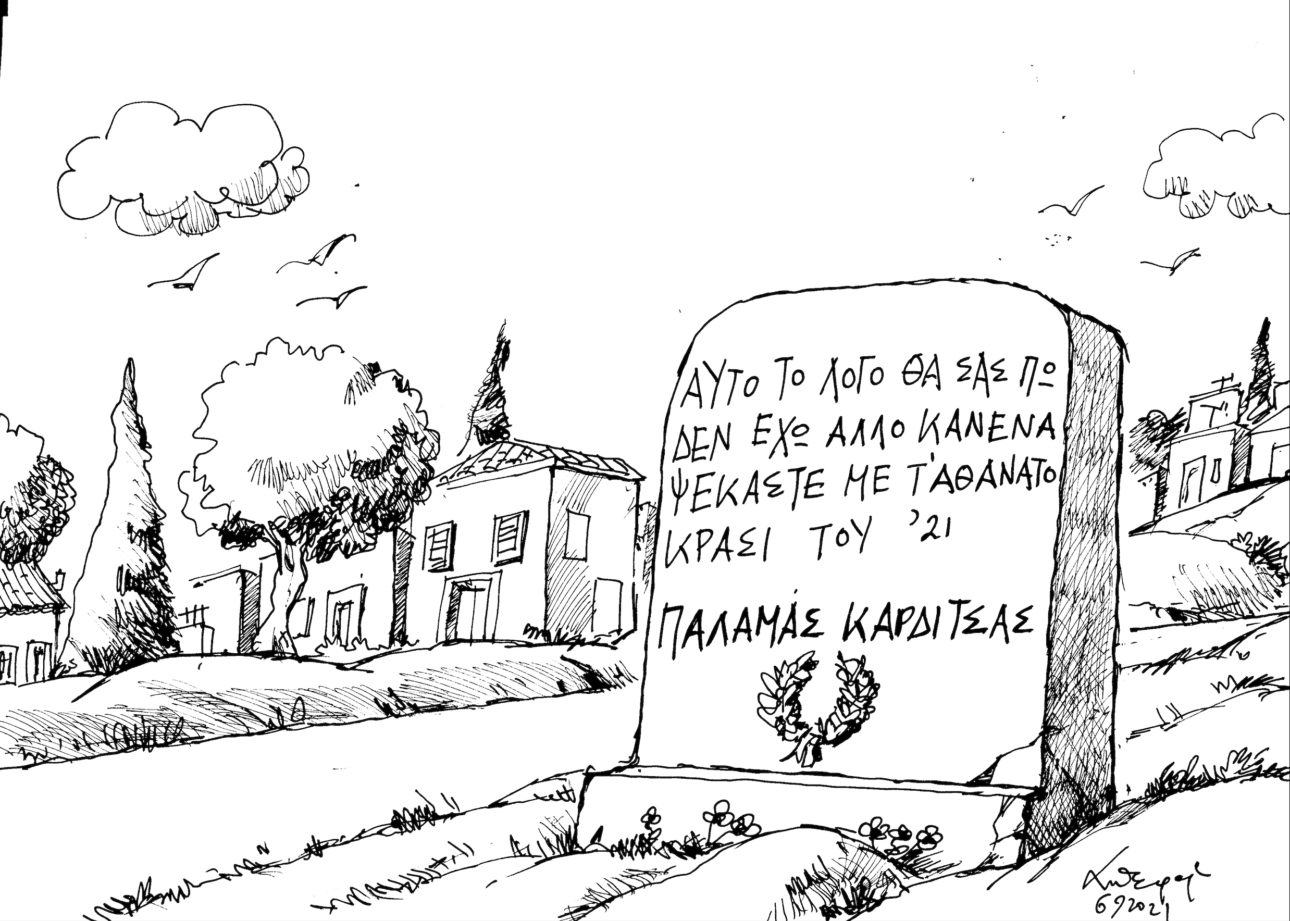 ΑΥΤΟ ΤΟ ΛΟΓΟ ΘΑ ΣΑΣ ΠΩ
ΔΕΝ ΕΧΩ ΑΛΛΟ ΚΑΝΕΝΑ
ΨΕΚΑΣΤΕ ΜΕ Τ'ΑΘΑΝΑΤΟ
ΚΡΑΣΙ ΤΟΥ '21
ΠΑΛΑΜΆΣ ΚΑΡΔΙΤΣΑΣ
6 9 2021